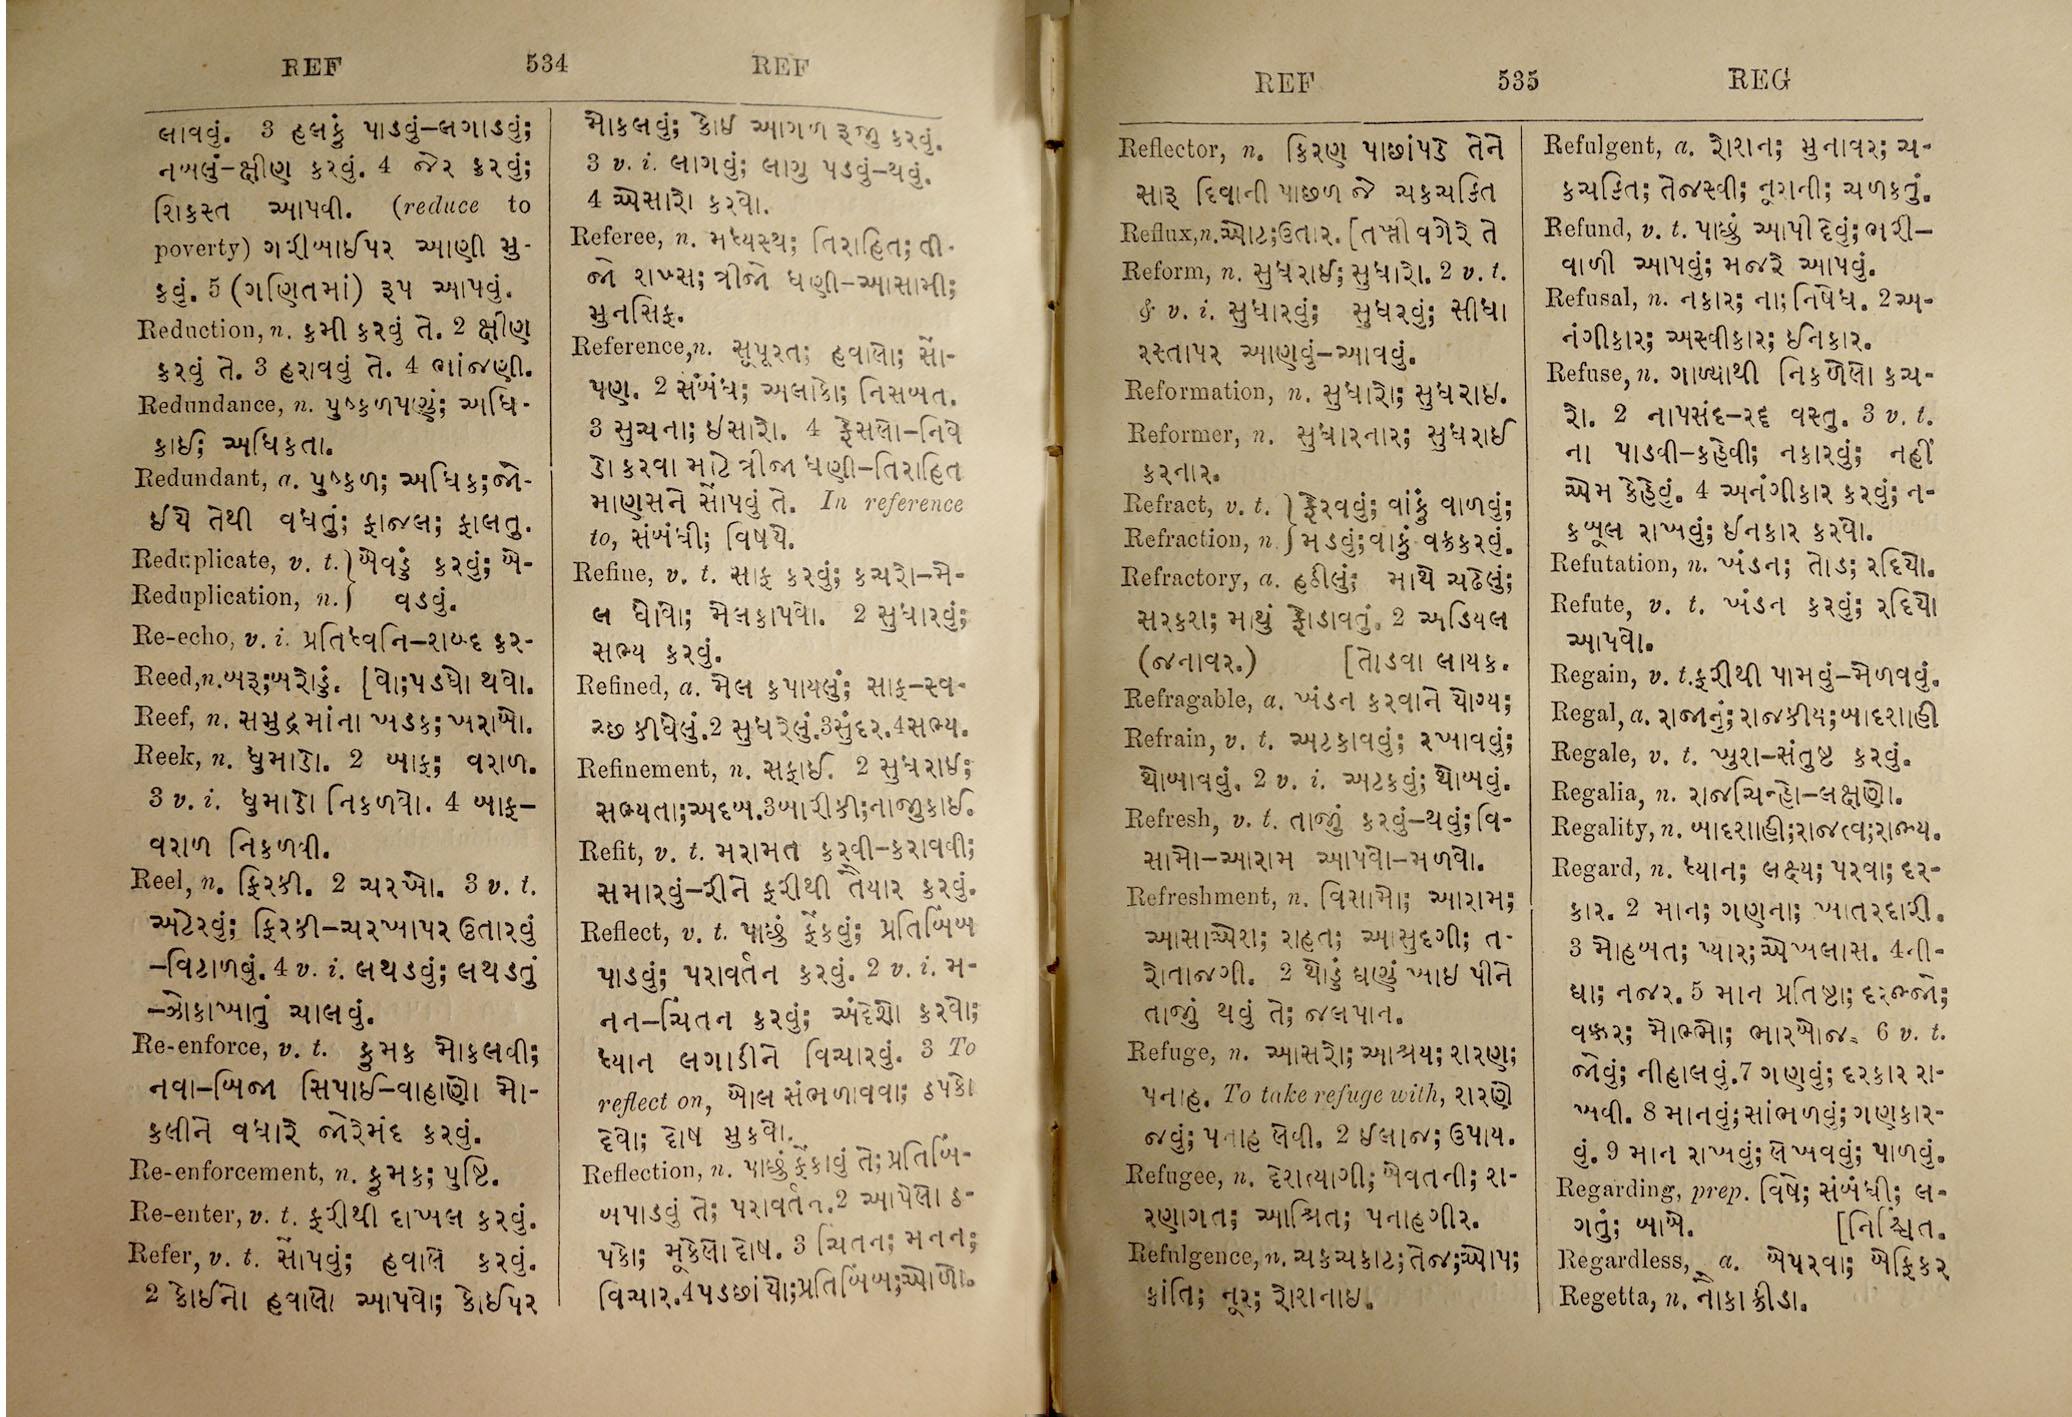 REF 534 REF
લાવવું. 3 હલકું પાડવું–લગાડવું;
નબલું–ક્ષીણ કરવું. 4 જેર કરવું;
શિકસ્ત આપવી. (reduce to
poverty) ગરીબાઈપર આણી મુ-
કવું. 5 (ગણિતમાં) રૂપ આપવું.
Reduction, n. કમી કરવું તે. 2 ક્ષીણ
કરવું તે. 3 હરાવવું તે. 4 ભાંજણી.
Redundance, n. પુષ્કળપણું; અધિ-
કાઈ; અધિકતા.
Redundant, a. પુષ્કળ; અધિક; જો-
ઈયે તેથી વધતું; ફાજલ; ફાલતુ.
Reduplicate, v. t.) બેવડું કરવું; બે-
Reduplication, n.) વડવું.
Re-echo, v. i. પ્રતિધ્વનિ–શબ્દ કર-
Reed, n. બરૂ; બરોડું. [વો; પડઘો થવો.
Reef, n. સમુદ્રમાંના ખડક; ખરાબો.
Reek, n. ધુમાડો. 2 બાફ; વરાળ.
3 v. i. ધુમાડો નિકળવો. 4 બાફ–
વરાળ નિકળવી.
Reel, n. ફિરકી. 2 ચરખો. 3 v. t.
અટેરવું; ફિરકી–ચરખાપર ઉતારવું
–વિટાળવું. 4 v. i. લથડવું; લથડતું
–ઝોકાખાતું ચાલવું.
Re-enforce, v. t. કુમક મોકલવી;
નવા–બિજા સિપાઈ–વાહાણો મો-
કલીને વધારે જોરેમંદ કરવું.
Re-enforcement, n. કુમક; પુષ્ટિ.
Re-enter, v. t. ફરીથી દાખલ કરવું.
Refer, v. t. સોંપવું; હવાલે કરવું.
2 કોઈનો હવાલો આપવો; કોઈપર
મોકલવું; કોઇ આગળ રૂજુ કરવું.
3 v. i. લાગવું; લાગુ પડવું–થવું.
4 એસારો કરવો.
Referee, n. મધ્યસ્થ; તિરાહિત; તી-
જો શખ્સ; ત્રીજો ધણી–આસામી;
મુનસિફ.
Reference, n. સૂપૂરત; હવાલો; સોં-
પણ. 2 સંબંધ; અલાકો; નિસબત.
3 સુચના; ઇસારો. 4 ફેસલો–નિવે
ડો કરવા માટે ત્રીજા ધણી–તિરાહિત
માણસને સોંપવું તે. In reference
to, સંબંધી; વિષયે.
Refine, v. t. સાફ કરવું; કચરો–મે-
લ ધોવો; મેલકાપવો. 2 સુધારવું;
સભ્ય કરવું.
Refined, a. મેલ કપાયલું; સાફ–સ્વ-
ચ્છ કીધેલું. 2 સુધરેલું. 3 સુંદર. 4 સભ્ય.
Refinement, n. સફાઈ. 2 સુધરાઇ;
સભ્યતા; અદબ. 3 બારીકી; નાજુકાઈ.
Refit, v. t. મરામત કરવી–કરાવવી;
સમારવું–રીને ફરીથી તૈયાર કરવું.
Reflect, v. t. પાછું ફેંકવું; પ્રતિબિંબ
પાડવું; પરાવર્તન કરવું. 2 v. i. મ-
નન–ચિંતન કરવું; અંદેશો કરવો;
ધ્યાન લગાડીને વિચારવું. 3 To
reflect on, બોલ સંભળાવવા; ઠપકો
દેવો; દોષ મુકવો.
Reflection, n. પાછું ફેંકાવું તે; પ્રતિબિં-
બપાડવું તે; પરાવર્તન. 2 આપેલો ઠ-
પકો; મૂકેલો દોષ. 3 ચિંતન; મનન;
વિચાર. 4 પડછાંયો; પ્રતિબિંબ; ઓળો.
REF 535 REG
Reflector, n. કિરણ પાછાંપડે તેને
સારૂ દિવાની પાછળ જે ચકચકિત
Reflux, n. ઓટ; ઉતાર. [તખ્તી વગેરે તે
Reform, n. સુધરાઇ; સુધારો. 2 v. t.
& v. i. સુધારવું; સુધરવું; સીધા
રસ્તાપર આણવું–આવવું.
Reformation, n. સુધારો; સુધરાઇ.
Reformer, n. સુધારનાર; સુધરાઈ
કરનાર.
Refract, v. t. ) ફેરવવું; વાંકું વાળવું;
Refraction, n ) મડવું; વાકું વક્રકરવું.
Refractory, a. હઠીલું; માથે ચઢેલું;
સરકશ; માથું ફોડાવતું. 2 અડિયલ
(જનાવર.) [તોડવા લાયક.
Refragable, a. ખંડન કરવાને યોગ્ય;
Refrain, v. t. અટકાવવું; રખાવવું;
થોબાવવું. 2 v. i. અટકવું; થોબવું.
Refresh, v. t. તાજું કરવું–થવું; વિ-
સામો–આરામ આપવો–મળવો.
Refreshment, n. વિસામો; આરામ;
આસાએશ; રાહત; આસુદગી; ત-
રોતાજગી. 2 થોડું ઘણું ખાઇ પીને
તાજું થવું તે; જલપાન.
Refuge, n. આસરો; આશ્રય; શરણ;
પનાહ. To take refuge with, શરણે
જવું; પનાહ લેવી. 2 ઈલાજ; ઉપાય.
Refugee, n. દેશત્યાગી; બેવતની; શ-
રણાગત; આશ્રિત; પનાહગીર.
Refulgence, n. ચકચકાટ; તેજ; ઓપ;
કાંતિ; નૂર; રોશનાઇ.
Refulgent, a. રોશન; મુનાવર; ચ-
કચકિત; તેજસ્વી; નૂરાની; ચળકતું.
Refund, v. t. પાછું આપી દેવું; ભરી–
વાળી આપવું; મજરે આપવું.
Refusal, n. નકાર; ના; નિષેધ. 2 અ-
નંગીકાર; અસ્વીકાર; ઇનિકાર.
Refuse, n. ગાળ્યાથી નિકળેલો કચ-
રો. 2 નાપસંદ–રદ્દ વસ્તુ. 3 v. t.
ના પાડવી–કહેવી; નકારવું; નહીં
એમ કેહેવું. 4 અનંગીકાર કરવું; ન-
કબૂલ રાખવું; ઈનકાર કરવો.
Refutation, n. ખંડન; તોડ; રદિયો.
Refute, v. t. ખંડન કરવું; રદિયો
આપવો.
Regain, v. t. ફરીથી પામવું–મેળવવું.
Regal, a. રાજાનું; રાજકીય; બાદશાહી
Regale, v. t. ખુશ–સંતુષ્ટ કરવું.
Regalia, n. રાજચિન્હો–લક્ષણો.
Regality, n. બાદશાહી; રાજત્વ; રાજ્ય.
Regard, n. ધ્યાન; લક્ષ્ય; પરવા; દર-
કાર. 2 માન; ગણના; ખાતરદારી.
3 મોહબત; પ્યાર; એખલાસ. 4 ની-
ઘા; નજર. 5 માન પ્રતિષ્ઠા; દરજ્જો;
વક્કર; મોભ્ભો; ભારબોજ. 6 v. t.
જોવું; નીહાલવું. 7 ગણવું; દરકાર રા-
ખવી. 8 માનવું; સાંભળવું; ગણકાર-
વું. 9 માન રાખવું; લેખવવું; પાળવું.
Regarding, prep. વિષે; સંબંધી; લ-
ગતું; બાબે. [નિશ્ચિત.
Regardless, a. બેપરવા; બેફિકર
Regetta, n. નૌકા ક્રીડા.